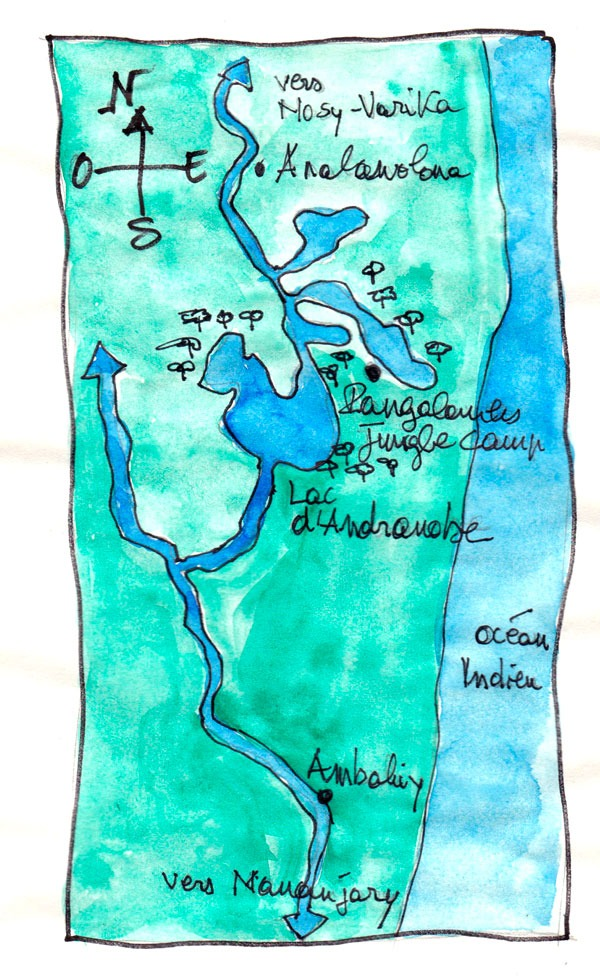 N
O E
S
vers
Mosy-Varika
Analamolona
Pangalanes
Jungle Camp
Lac
d'Andranobe
océan
Indien
Ambohiy
vers Mananjary